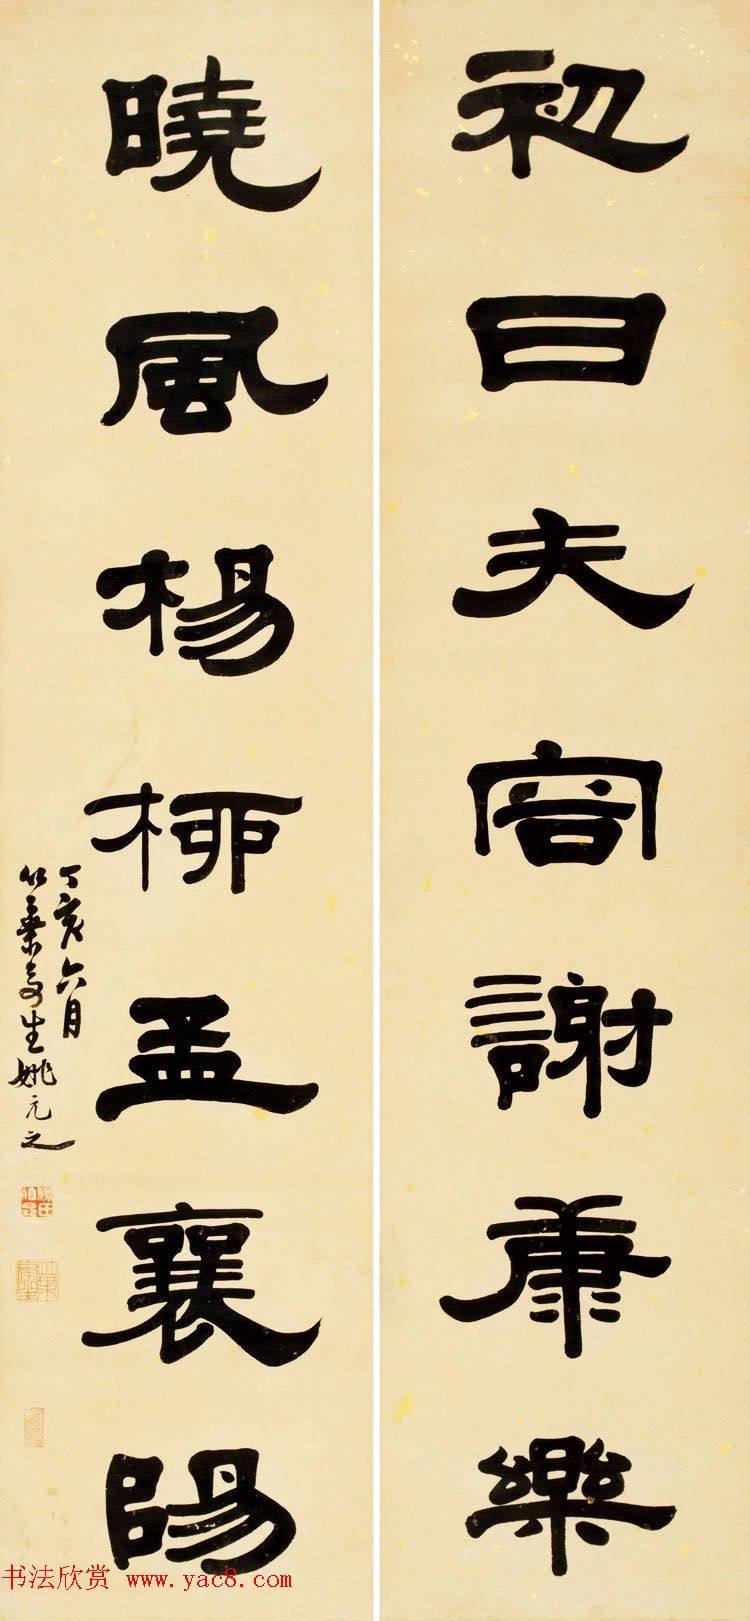 初日夫容謝康樂
曉風楊柳孟襄陽
丁亥六月
竹葉亭生姚元之
书法欣赏 www.yac8.com